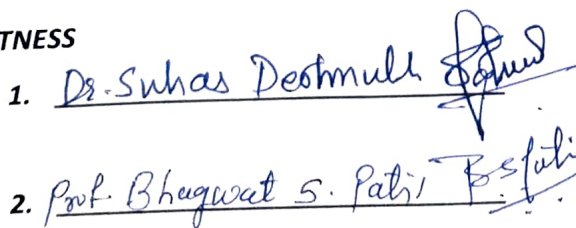 TNESS
1. Dr. Suhas Deshmukh
2. Prof. Bhagwat S. Patil BSPatil